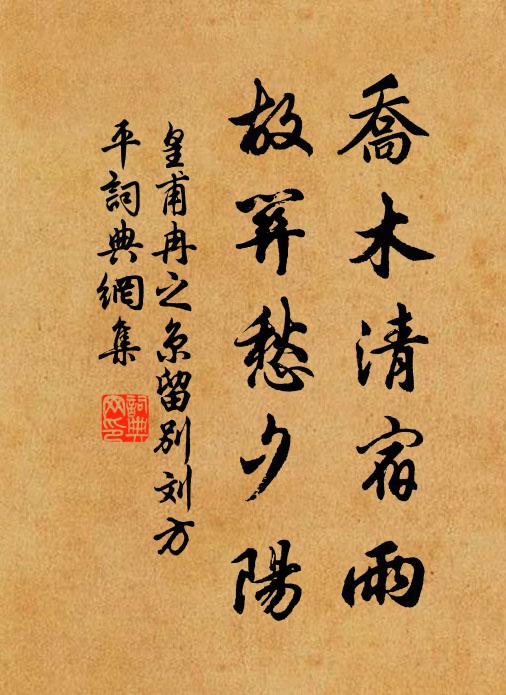 喬木清宿雨
故關愁夕陽
皇甫冉之京留别刘方
平詞典網集
詞典
网印